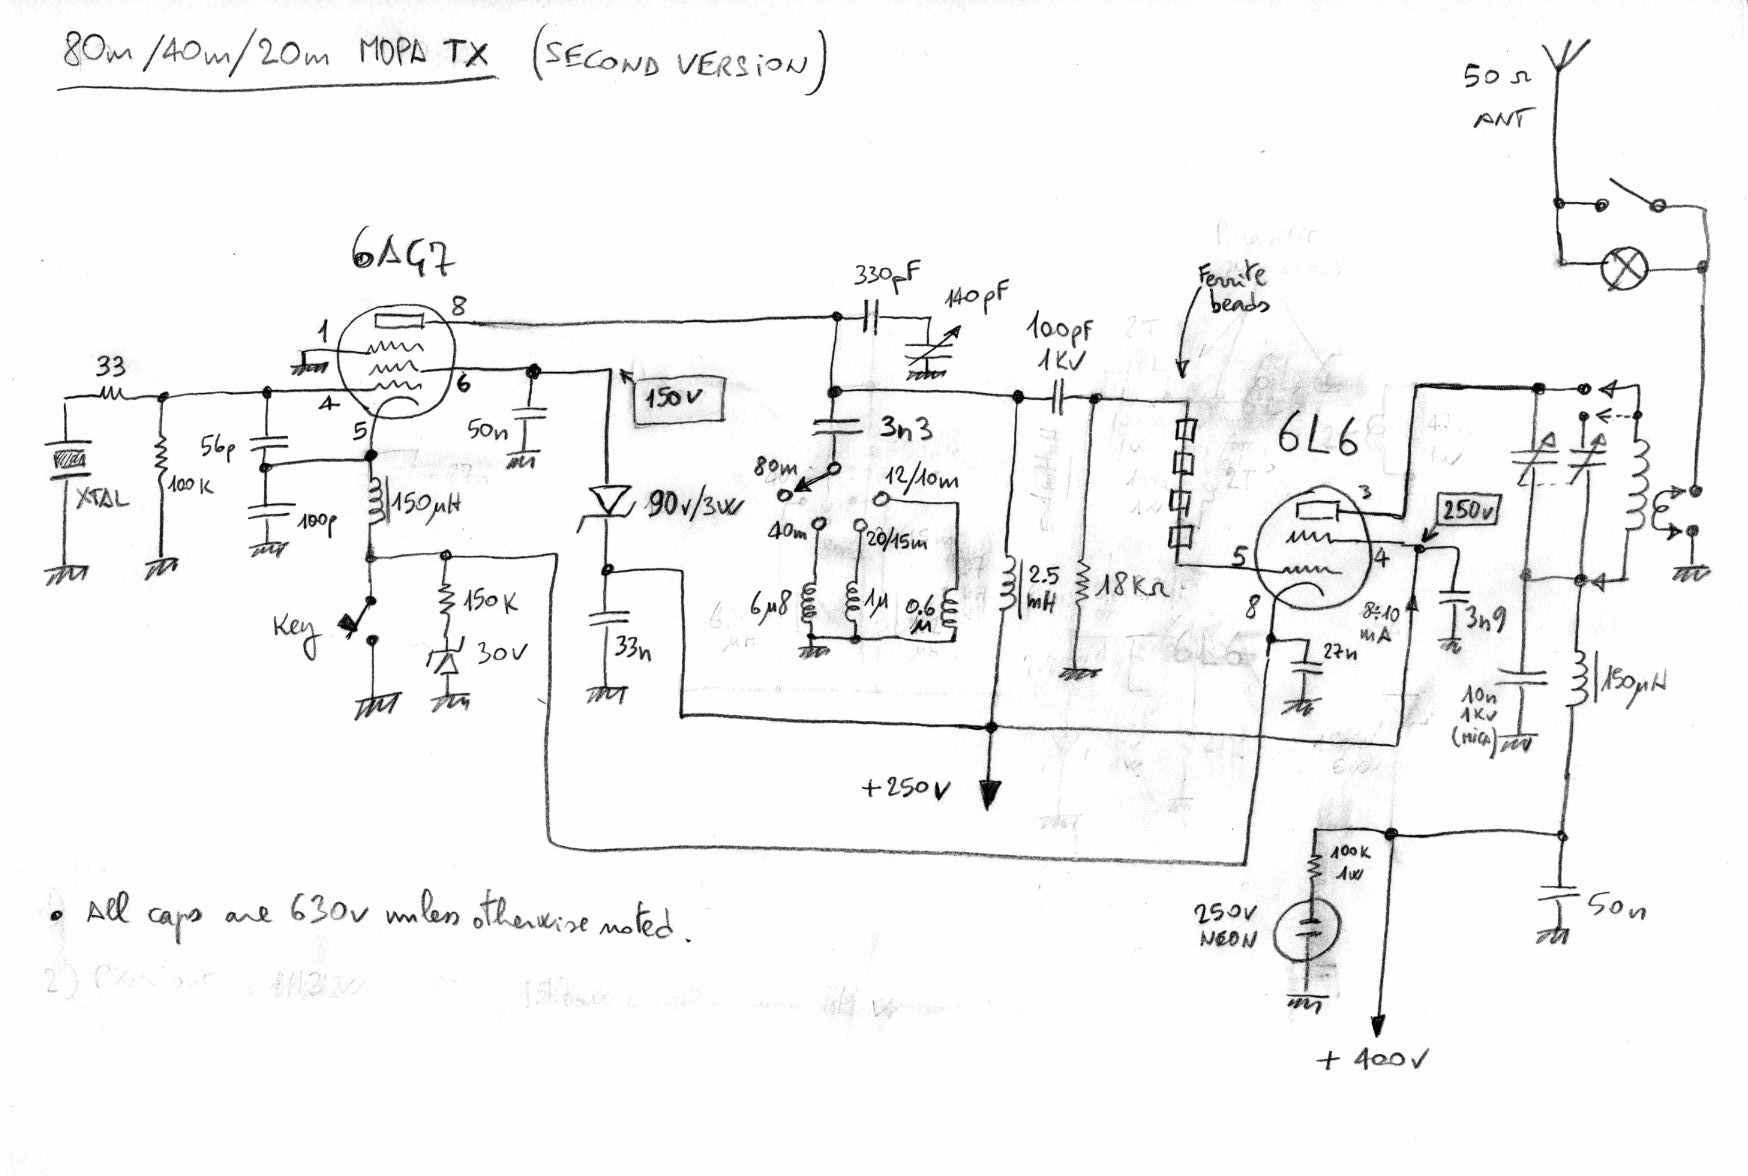 80m/40m/20m MOPA TX (SECOND VERSION)
50Ω
ANT
6AG7
8
1
33
4
6
5
56p
100K
XTAL
100p
150µH
50n
150V
330pF
140pF
100pF
1KV
Ferrite
beads
3n3
80m
12/10m
40m
20/15m
90V/3W
6µ8
1µ
0.6
µ
2.5
mH
18KΩ
6L6
3
5
4
8
250V
8÷10
mA
3n9
27n
10n
1KV
(MICA)
150µH
Key
150K
30V
33n
+250V
100K
1W
250V
NEON
50n
+ 400V
• All caps are 630V unless otherwise noted.